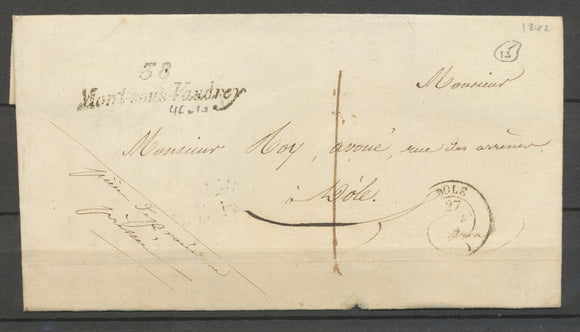 1842
15
38
Mont-sous-Vaudrey
46 x 10
Monsieur
Monsieur Roy, avoué, rue des arènes
à Dôle.
1
DOLE
27